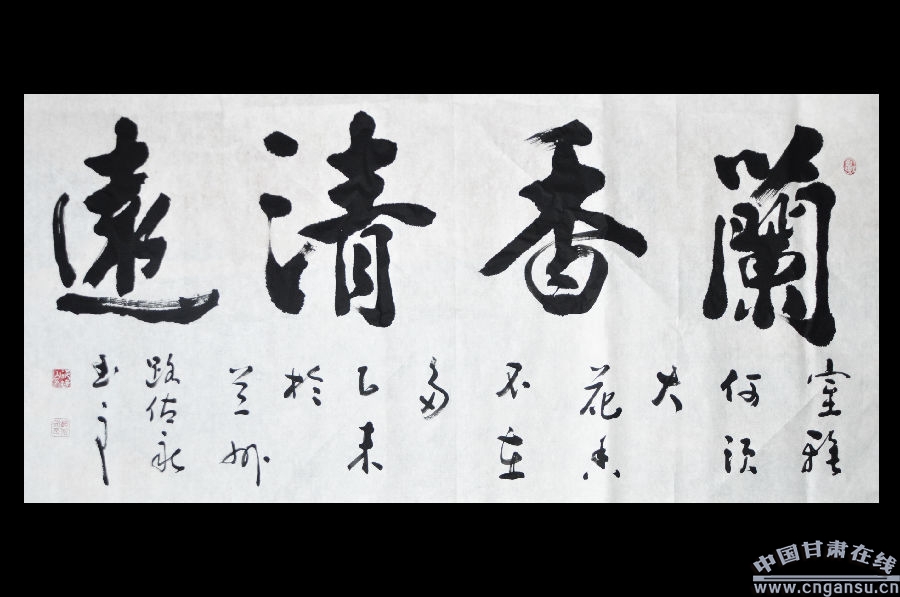 蘭香清遠
室雅
何須
大
花香
不在
多
乙未
於
兰州
路佐永
书
中国甘肃在线
www.cngansu.cn